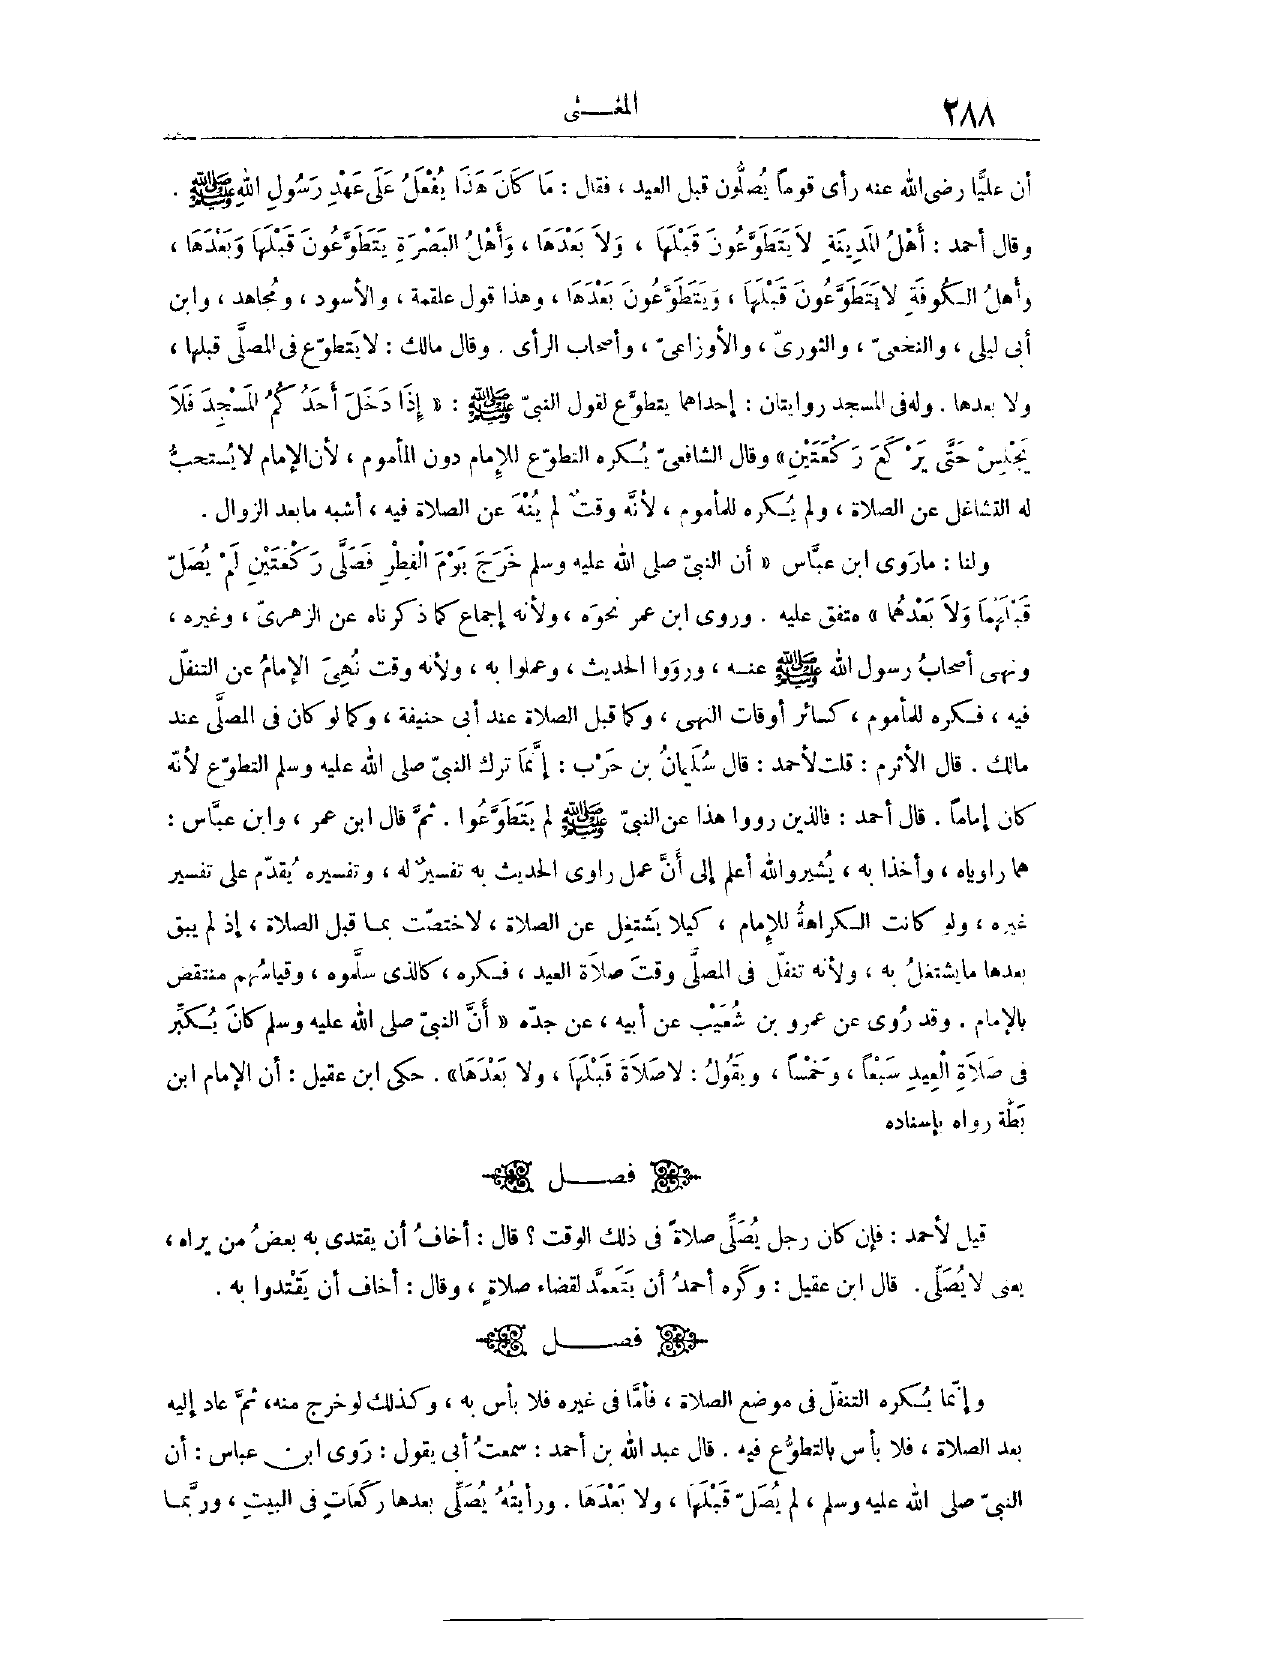 ٢٨٨
المغــنى
أن عليًّا رضى الله عنه رأى قوماً يُصلُّون قبل العيد ، فقال : مَا كَانَ هَذَا يُفْعَلُ عَلَى عَهْدِ رَسُولِ اللهِ ﷺ .
وقال أحمد : أَهْلُ المَدِينَةِ لاَ يَتَطَوَّعُونَ قَبْلَهَا ، وَلاَ بَعْدَهَا ، وَأَهْلُ البَصْرَةِ يَتَطَوَّعُونَ قَبْلَهَا وَبَعْدَهَا ،
وأهلُ الـكُوفَةِ لا يَتَطَوَّعُونَ قَبْلَهَا ، وَيَتَطَوَّعُونَ بَعْدَهَا ، وهذا قول علقمة ، والأسود ، ومُجاهد ، وابن
أبى ليلى ، والنخعىّ ، والثورىّ ، والأوزاعىّ ، وأصحاب الرأى . وقال مالك : لا يَتطوّع فى المصلَّى قبلها ،
ولا بعدها . وله فى المسجد روايتان : إحداهما يتطوّع لقول النبىّ ﷺ : « إِذَا دَخَلَ أَحَدُكُمُ المَسْجِدَ فَلاَ
يَجْلِسْ حَتَّى يَرْكَعَ رَكْعَتَيْنِ » وقال الشافعىّ يُـكره التطوّع للإِمام دون المأموم ، لأن الإمام لا يُستحبُّ
له التشاغل عن الصلاة ، ولم يُـكره للمأموم ، لأنَّه وقتٌ لم يُنْهَ عن الصلاة فيه ، أشبه ما بعد الزوال .
ولنا : ما رَوى ابن عبَّاس « أن النبىّ صلى الله عليه وسلم خَرَجَ يَوْمَ الْفِطْرِ فَصَلَّى رَكْعَتَيْنِ لَمْ يُصَلّ
قَبْلَهُمَا وَلاَ بَعْدَهُمَا » متفق عليه . وروى ابن عمر نحوَه ، ولأنه إجماع كما ذكرناه عن الزهرىّ ، وغيره ،
ونهى أصحابُ رسول الله ﷺ عنـه ، وروَوا الحديث ، وعملوا به ، ولأنه وقت نُهِىَ الإمامُ عن التنفّل
فيه ، فـكره للمأموم ، كسائر أوقات النهى ، وكما قبل الصلاة عند أبى حنيفة ، وكما لو كان فى المصلَّى عند
مالك . قال الأثرم : قلت لأحمد : قال سُلَيمانُ بن حَرْب : إنَّمَا ترك النبىّ صلى الله عليه وسلم التطوّع لأنّه
كان إماماً . قال أحمد : فالذين رووا هذا عن النبىّ ﷺ لم يَتَطَوَّعُوا . ثمَّ قال ابن عمر ، وابن عبَّاس :
هما راوياه ، وأخذا به ، يُشير والله أعلم إلى أَنَّ عمل راوى الحديث به تفسيرٌ له ، وتفسيره يُقدّم على تفسير
غيره ، ولو كانت الـكراهةُ للإِمام ، كيلا يَشتغِل عن الصلاة ، لاختصّت بمـا قبل الصلاة ، إذ لم يبق
بعدها ما يشتغلُ به ، ولأنه تنفّل فى المصلَّى وقتَ صلاَة العيد ، فـكره ، كالذى سلَّموه ، وقياسُهم منتقض
بالإمام . وقد رُوى عن عمرو بن شُعَيْب عن أبيه ، عن جدّه « أَنَّ النبىّ صلى الله عليه وسلم كانَ يُـكَبِّر
فى صَلاَةِ الْعِيدِ سَبْعاً ، وَخَمْساً ، ويَقُولُ : لا صَلاَةَ قَبْلَهَا ، ولا بَعْدَهَا» . حكى ابن عقيل : أن الإمام ابن
بَطّة رواه بإسناده
فصـــل
قيل لأحمد : فإن كان رجل يُصَلِّى صلاةً فى ذلك الوقت ؟ قال : أخافُ أن يقتدى به بعضُ من يراه ،
يعنى لا يُصَلِّى. قال ابن عقيل : وكَره أحمدُ أن يَتَعمَّد لقضاء صلاةٍ ، وقال : أخاف أن يَقْتدوا به .
فصـــل
وإنّما يُـكره التنفّل فى موضع الصلاة ، فأمَّا فى غيره فلا بأس به ، وكذلك لو خرج منه، ثمَّ عاد إليه
بعد الصلاة ، فلا بأس بالتطوُّع فيه . قال عبد الله بن أحمد : سمعتُ أبى يقول : رَوى ابن عباس : أن
النبىّ صلى الله عليه وسلم ، لم يُصَلّ قَبْلَهَا ، ولا بَعْدَهَا . ورأيتُهُ يُصَلِّى بعدها ركَعَاتٍ فى البيتِ ، وربَّمـا